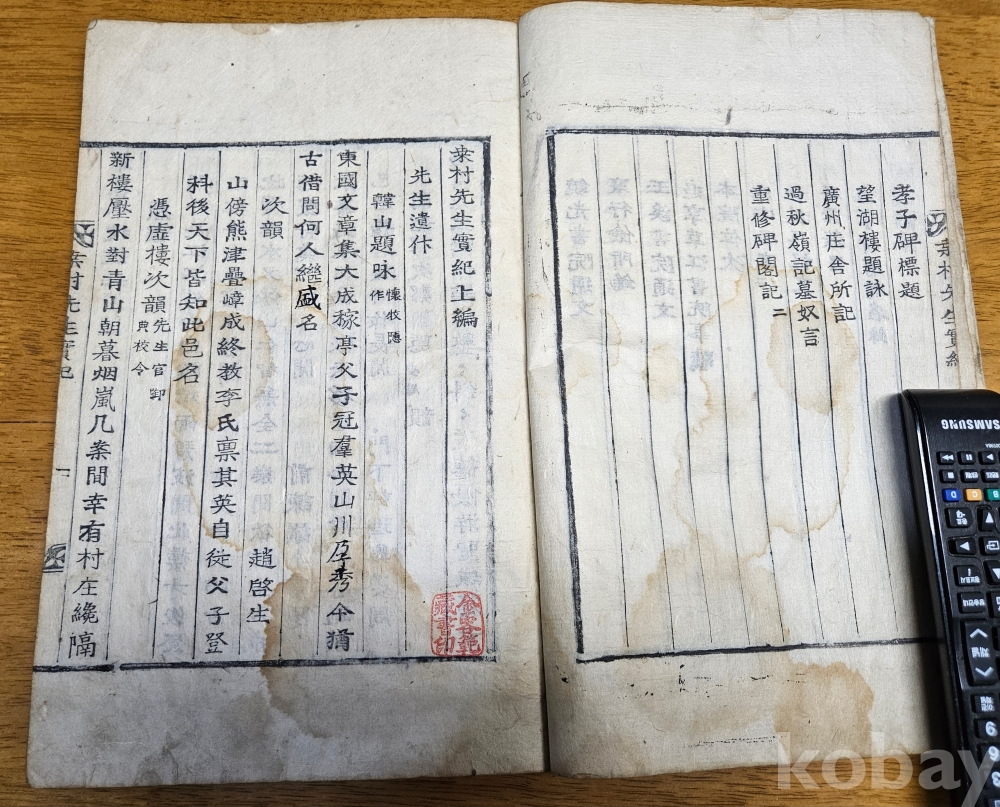 孝子碑標題
望湖樓題詠
廣州庄舍所記
過秋嶺記墓奴言
重修碑閣記二
桒村先生實紀
桒村先生實紀上編
先生遺作
韓山題咏 懷牧隱作
東國文章集大成稼亭父子冠羣英山川孕秀今猶
古借問何人繼盛名
次韻 趙啓生
山傍熊津疊嶂成終教李氏禀其英自從父子登
科後天下皆知此邑名
憑虛樓次韻 先生官御典校令
新樓壓水對青山朝暮烟嵐几案間幸有村庄纔隔
桒村先生實記
一
藏書印
SAMSUNG
kobay